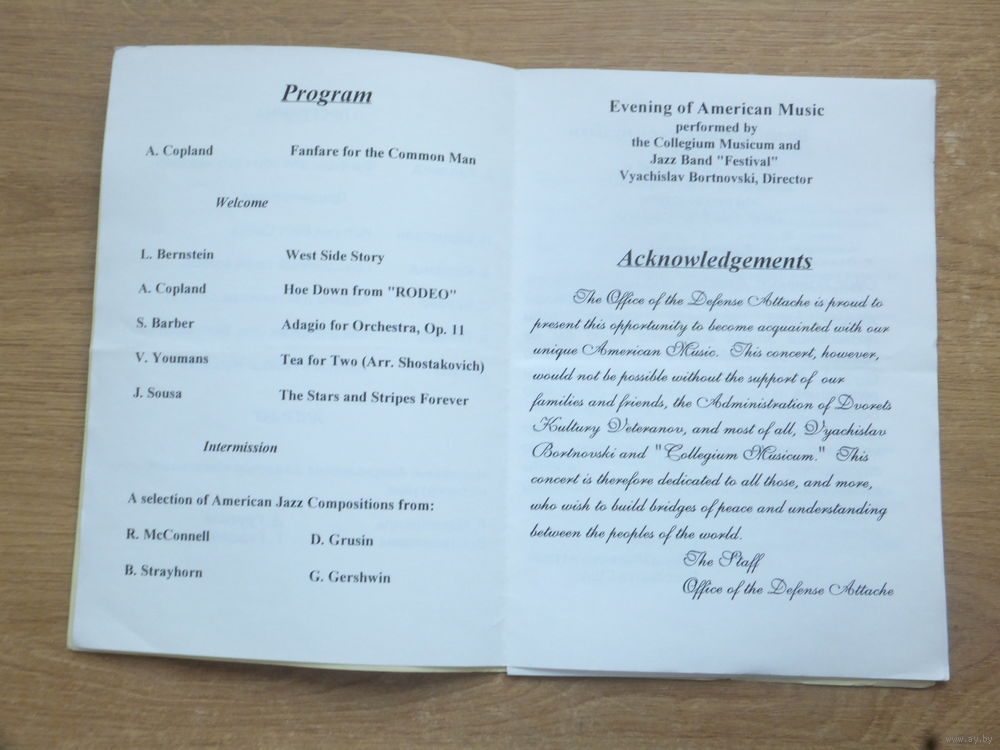 Program
A. Copland Fanfare for the Common Man
Welcome
L. Bernstein West Side Story
A. Copland Hoe Down from "RODEO"
S. Barber Adagio for Orchestra, Op. 11
V. Youmans Tea for Two (Arr. Shostakovich)
J. Sousa The Stars and Stripes Forever
Intermission
A selection of American Jazz Compositions from:
R. McConnell D. Grusin
B. Strayhorn G. Gershwin
Evening of American Music
performed by
the Collegium Musicum and
Jazz Band "Festival"
Vyachislav Bortnovski, Director
Acknowledgements
The Office of the Defense Attache is proud to
present this opportunity to become acquainted with our
unique American Music. This concert, however,
would not be possible without the support of our
families and friends, the Administration of Dvorets
Kultury Veteranov, and most of all, Vyachislav
Bortnovski and "Collegium Musicum." This
concert is therefore dedicated to all those, and more,
who wish to build bridges of peace and understanding
between the peoples of the world.
The Staff
Office of the Defense Attache
www.ay.by